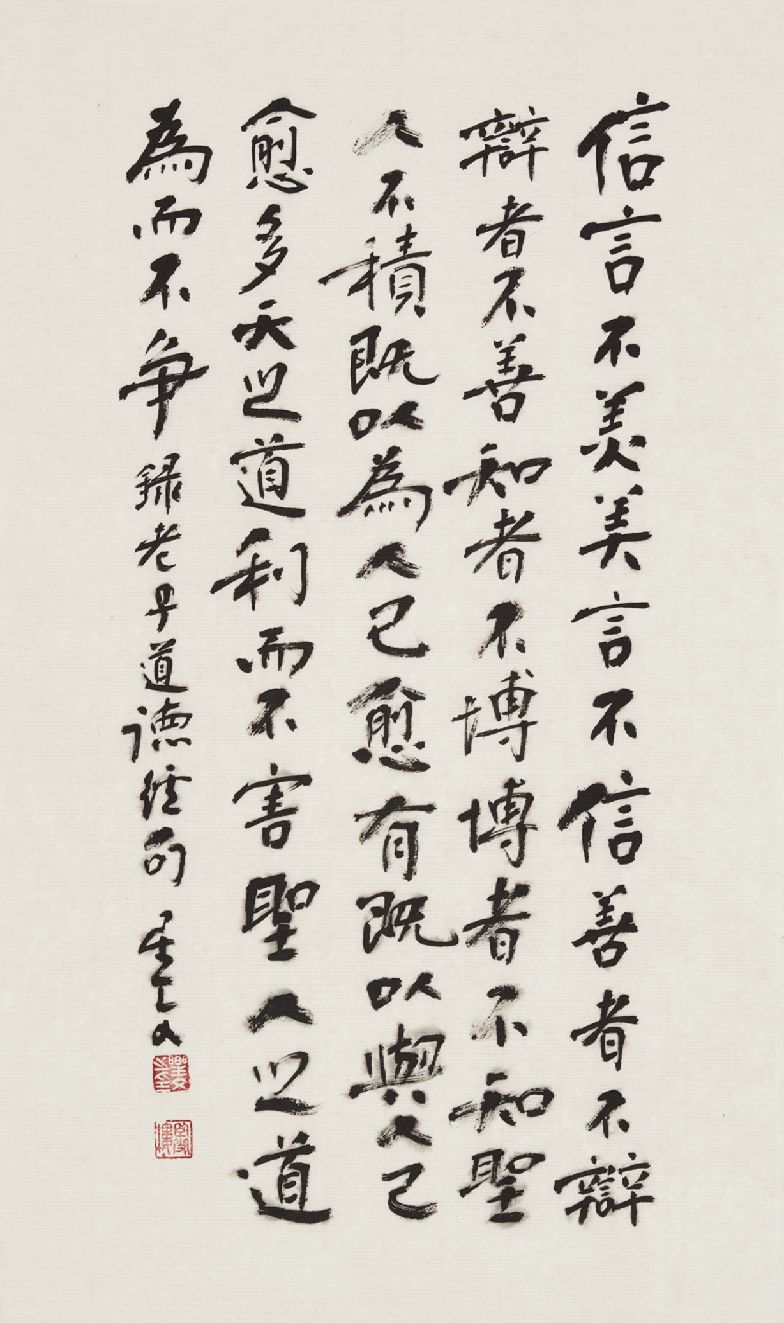 信言不美美言不信善者不辯
辯者不善知者不博博者不知聖
人不積既以為人己愈有既以與人己
愈多天之道利而不害聖人之道
為而不争録老子道德經句